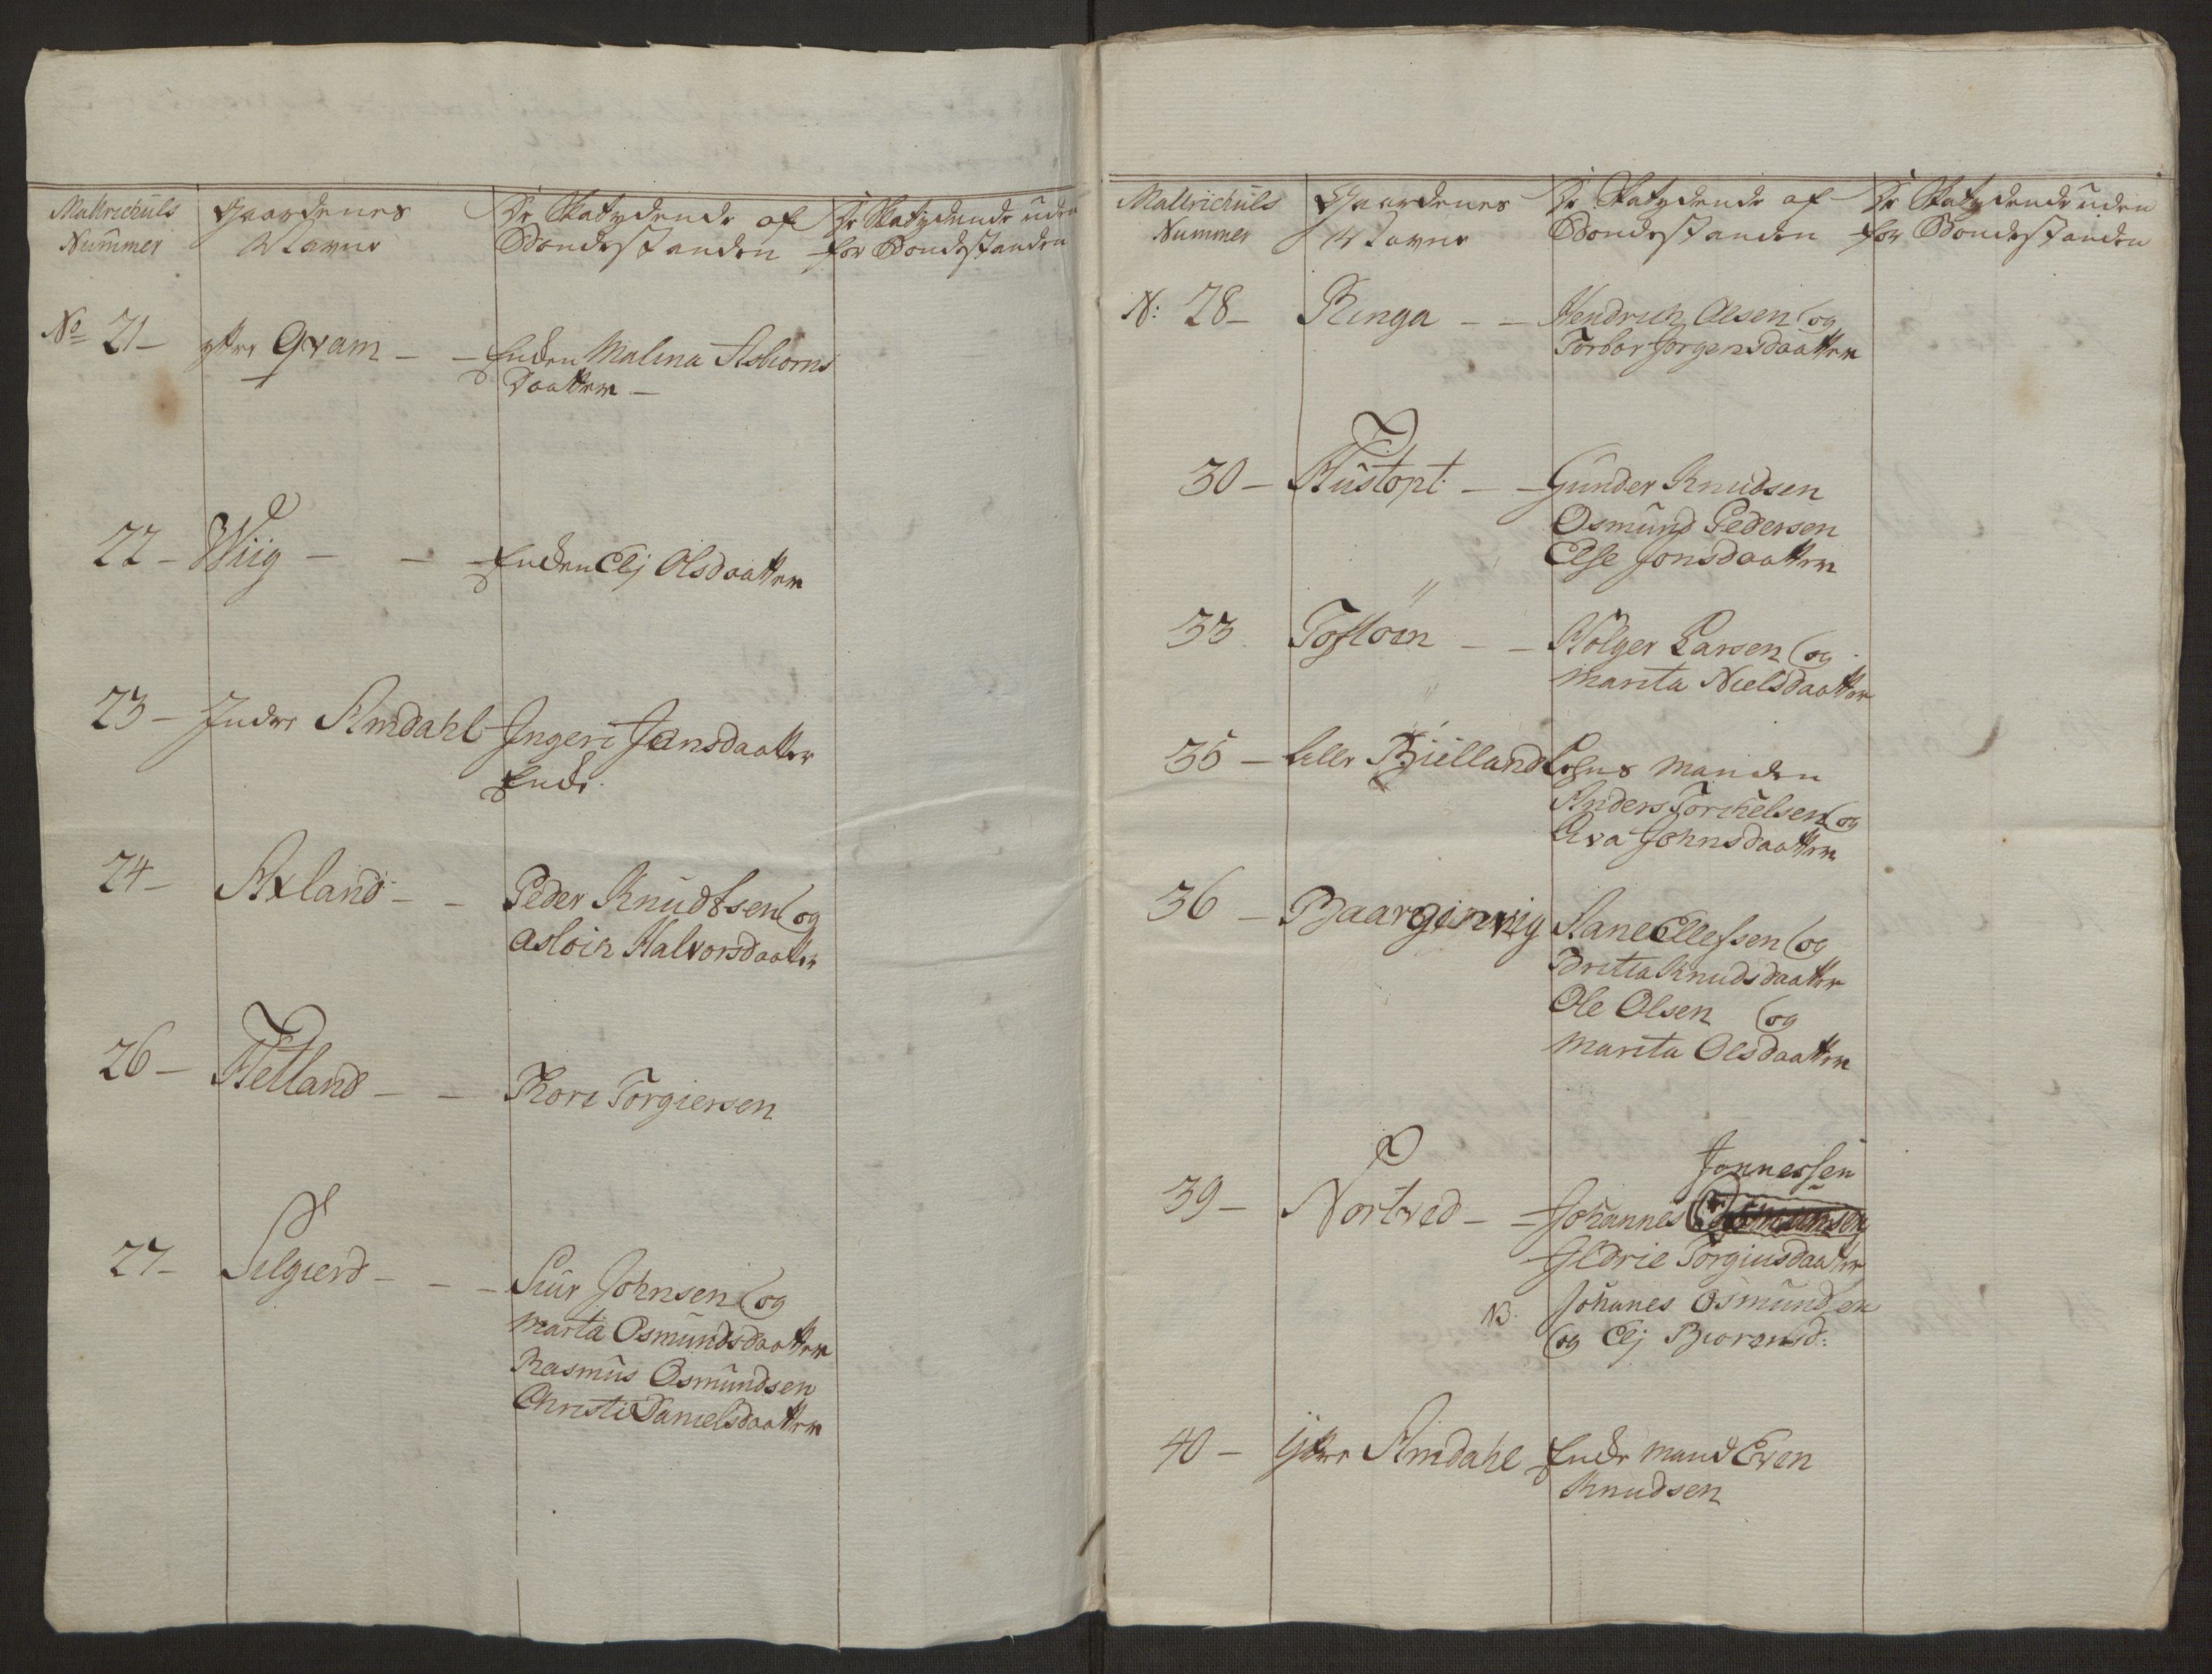 Mattrichuls Nummer
Gaardenes Navne
De Skatydende af Bondestanden
De Skatydende uden for Bondestanden
No 21 - ytre Qvam - - Enken Malina Asbiorns
Daatter -
22 - Wiig - - - Enken Elj Olsdaatter
23 - Indre Amdahl Ingeri Jansdaatter
Enke.
24 - Axland - - Peder Knudtsen og
Asloier Halvorsdaatter
26 - Hetland - - Thore Torgiersen
27 - Selgierd - - - Siur Johnsen og
Marta Osmundsdaatter
Rasmus Osmundsen
Christi Danielsdaatter
Mattrichuls Nummer
Gaardenes Navne
De Skatydende af Bondestanden
De Skatydende uden for Bondestanden
N: 28 - Ringa - - Hendrich Olsen og
Torbor Jørgensdaatter
30 - Hustopt - - Gunder Knudsen
Osmund Pedersen
Else Jonsdaatter
33 Toftøen - - Holger Larsen og
Marita Nielsdaatter
35 - Lille Bielland Lehns Manden
Anders Torchelsen og
Eva Johnsdaatter
36 - Baarginvig Aane Ellefsen og
Britta Knudsdaatter
Ole Olsen og
Marita Olsdaatter
Jonnessen
39 - Nortved - - Johannes
Eldrie Torgiusdaatter
NB. Johanes Osmundsen
og Elj Biorensd:
40 - Ytre Amdahl Enke Mand Even
Knudsen